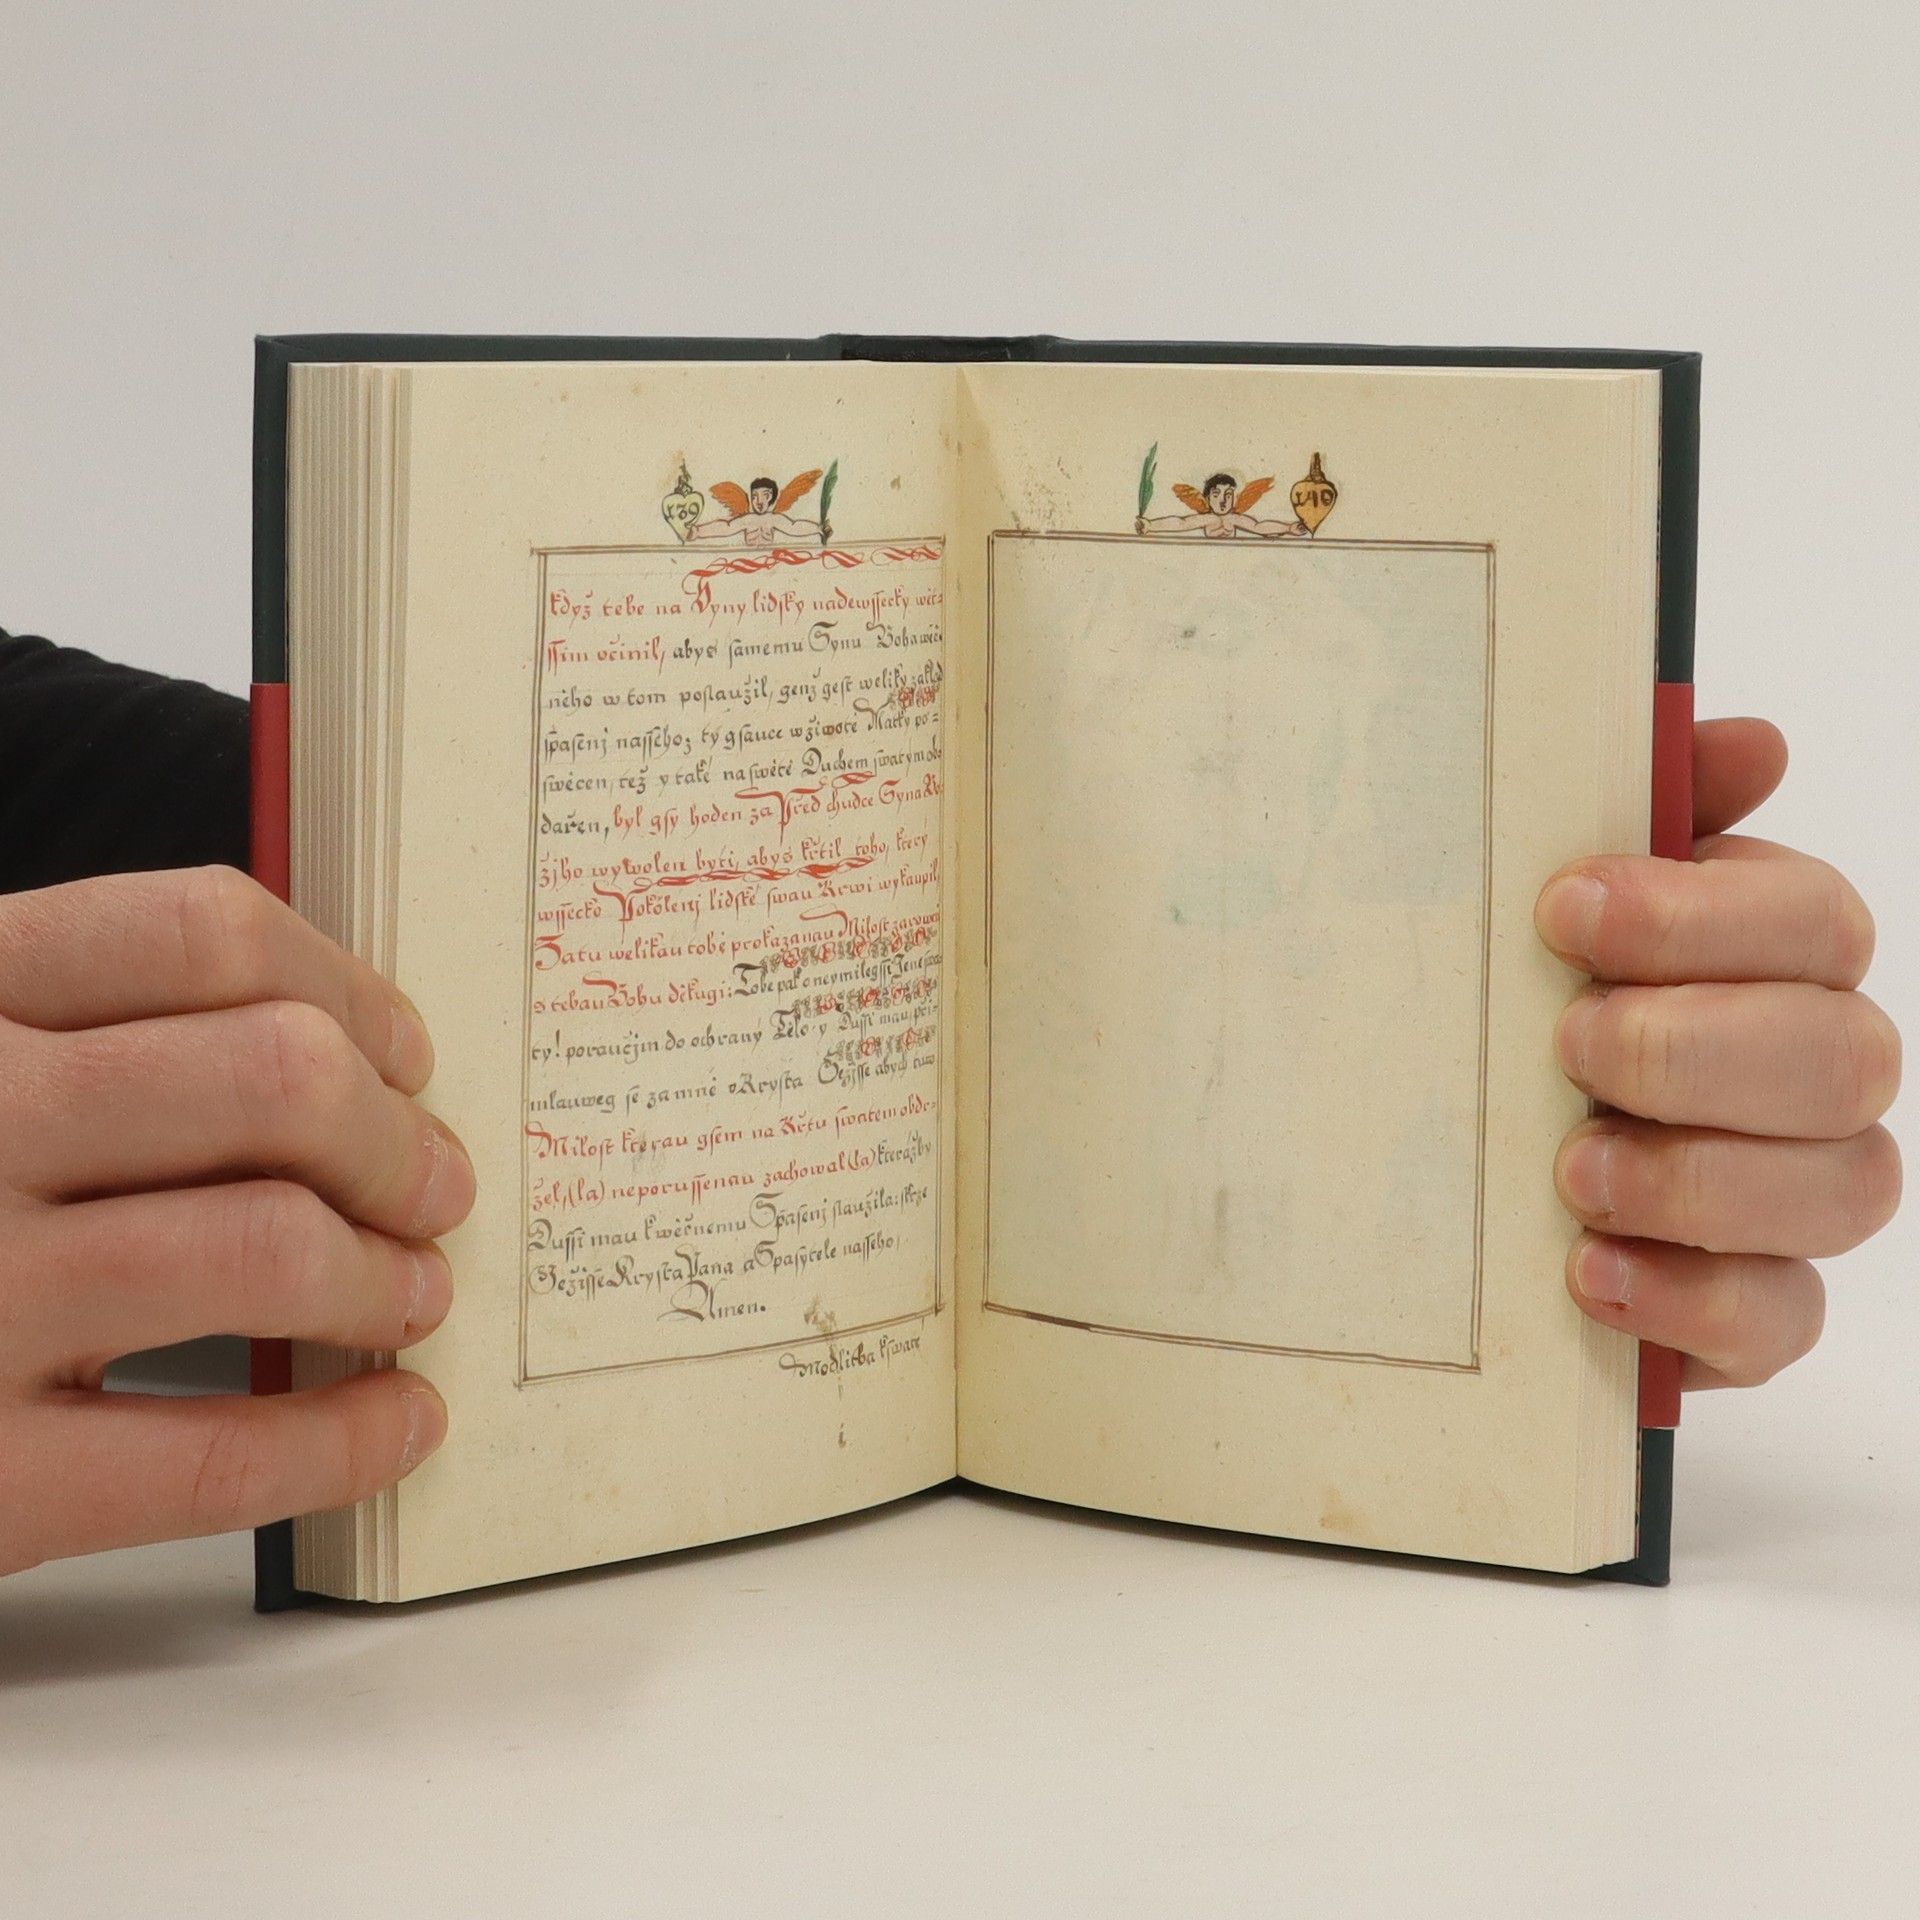 139
když tebe na Syny lidſky nadewſſecky wět=
ſſim očinil, abys ſamemu Synu Boha wěč
neho w tom poſlaužil, genž geſt weliky zaklad
ſpaſenj naſſeho; ty gſauce w žiwotě Matky po=
ſwěcen, též y také na ſwětě Duchem ſwatym ob
dařen, byl gſy hoden za Před chudce Syna Bo
žjho wywolen byti, abys křtil toho, ktery
wſſecko Pokolenj lidſké ſwau Krwi wykaupil,
Za tu welikau tobě prokazanau Miloſt zarowen
s tebau Bohu děkugi: Tobě pak o neymilegſſi Jene ſwa
ty! poraučjm do ochrany Tělo y Duſſi mau, při=
mlauweg ſe za mně v Kryſta Gežjſſe abych tuto
Miloſt kterau gſem na Křtu ſwatem obdr=
žel, (la) neporuſſenau zachowal (la) kterážby
Duſſi mau k wěčnemu Spaſenj ſlaužila: ſkrze
Gežiſſe Kryſta Pana a Spaſytele naſſeho,
Amen.
Modlitba k ſwaté
140